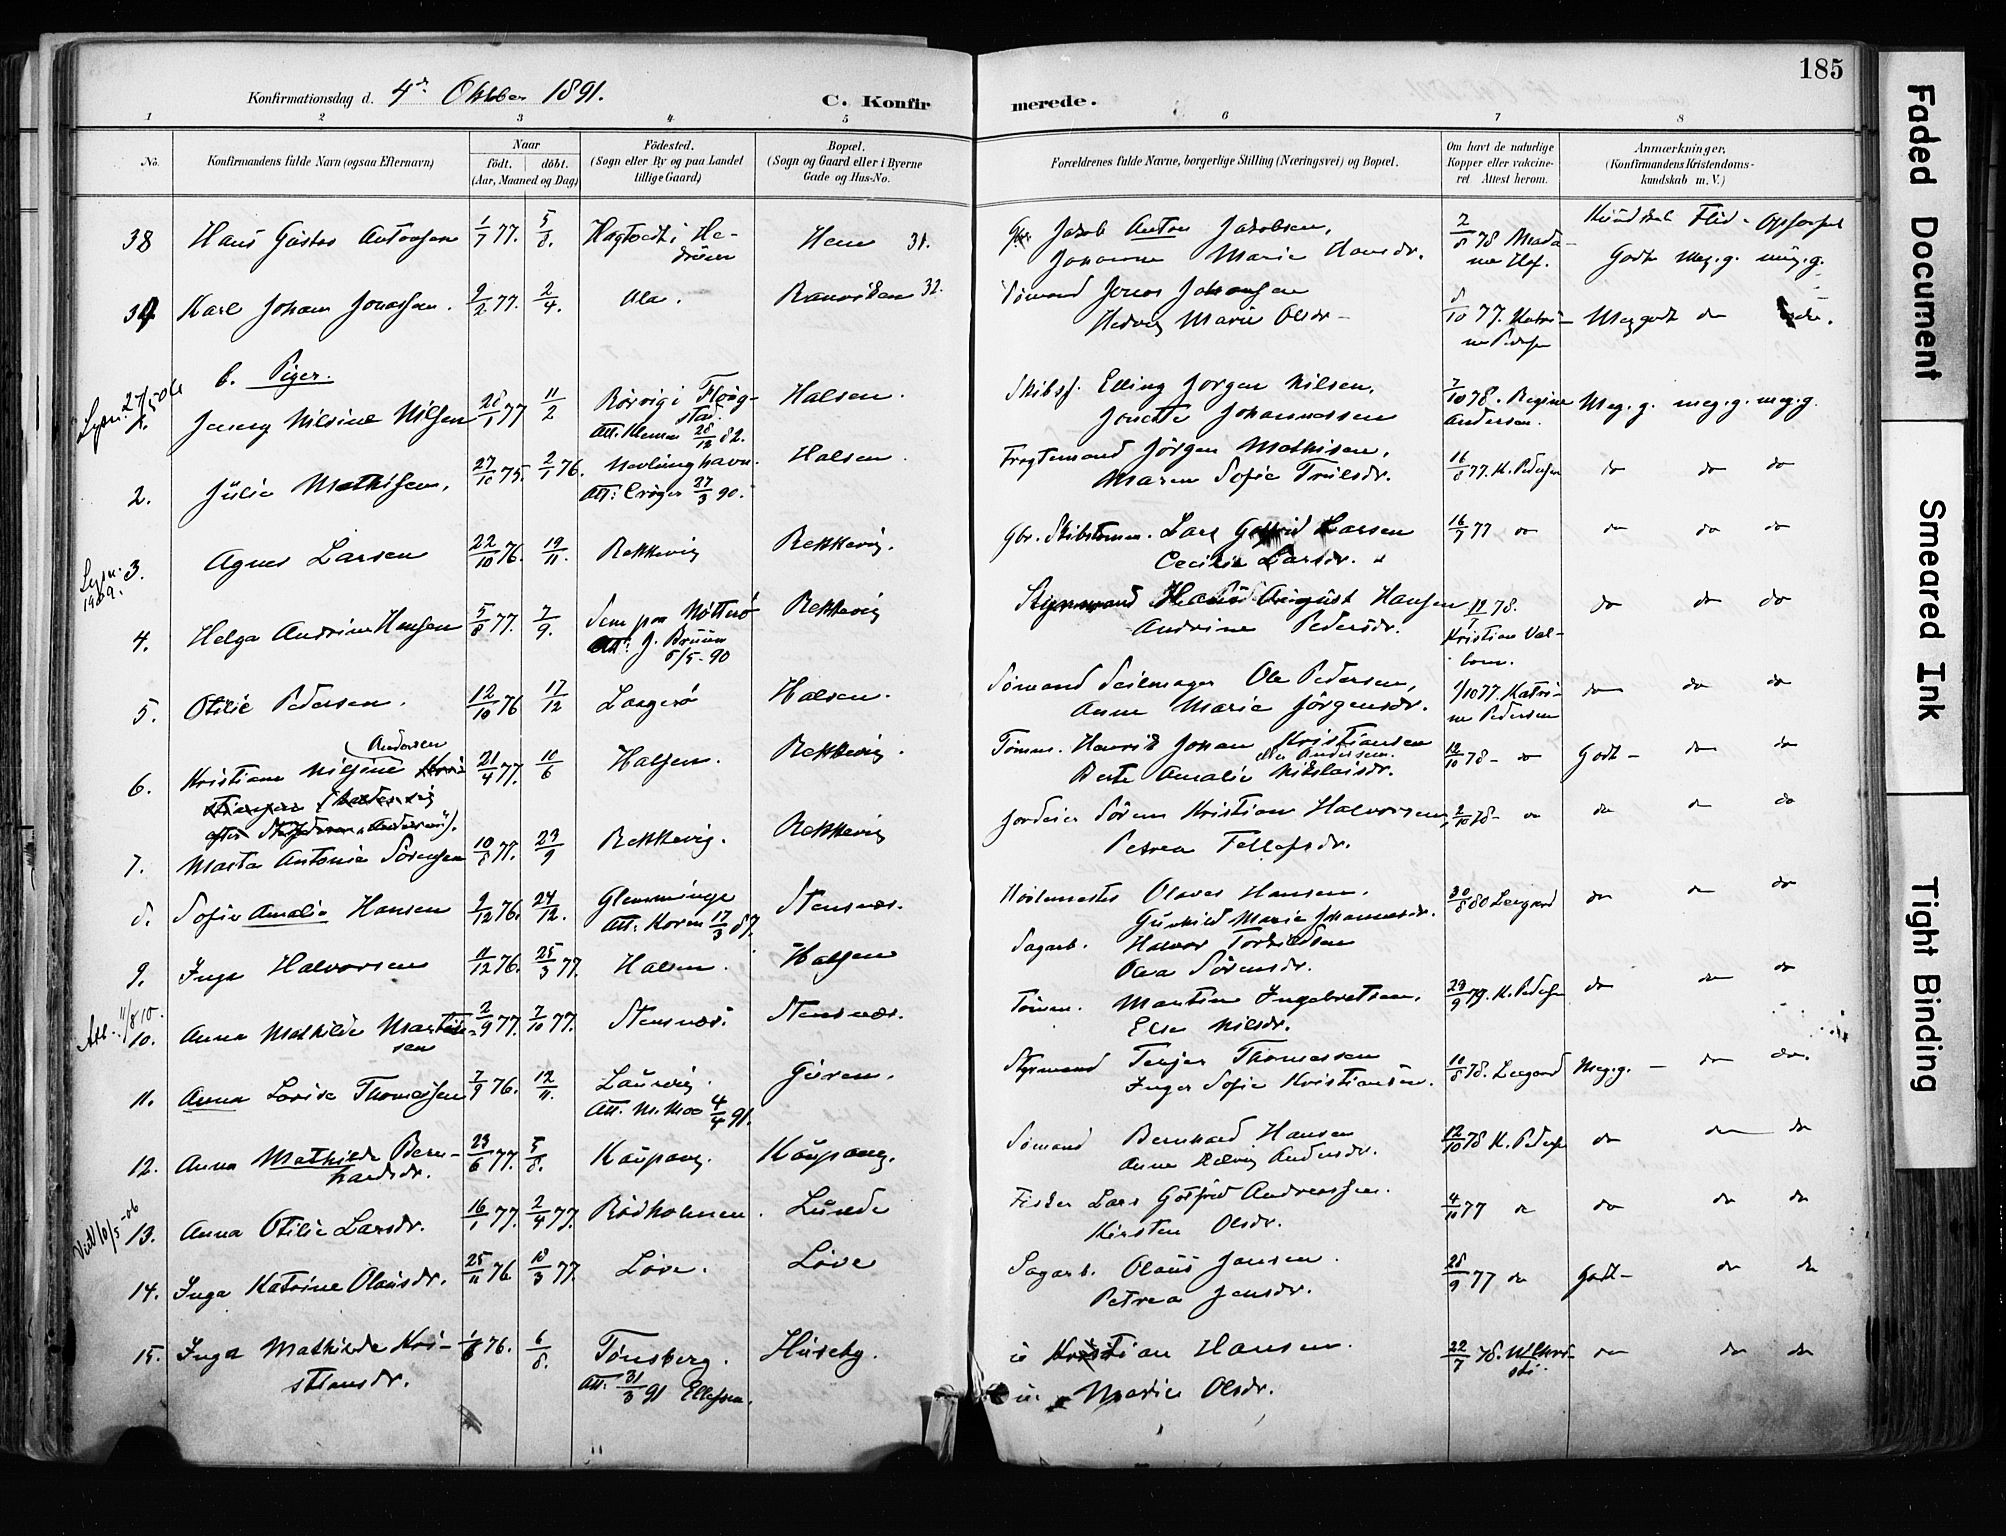 185
Konfirmationsdag d. 4de Oktober 1891.
C. Konfirmerede.
1 2 3 4 5 6 7 8
No. Konfirmandens fulde Navn (ogsaa Efternavn) Naar født. døbt. (Aar, Maaned og Dag) Fødested. (Sogn eller By og paa Landet tillige Gaard) Bopæl. (Sogn og Gaard eller i Byerne Gade og Hus-No. Forældrenes fulde Navne, borgerlige Stilling (Næringsvei) og Bopæl. Om havt de naturlige Kopper eller vakcineret. Attest herom. Anmærkninger, (Konfirmandens Kristendomskundskab m. V.)
38 Hans Gustav Antonsen 1/7 77. 5/8. Hem 31. Jakob Anton Jakobsen, 2/8 78 Flid
Johanne Marie Hansdr. Godt meg.g. mg.g.
39 Karl Johan Jonassen. 9/2 77. 2/4. Ula. 32. Sømand Jonas Johansen 8/10 77. Katrine Pedersen Meg godt do
Hedvig Marie Olsdr
b. Piger.
Lysn. 27/5 06
1. Jenny Nilsine Nilsen 28/1 77 11/2 Rørvig i Halsen. Skibsf. Elling Jørgen Nilsen, 7/10 78. Regine Andersen. Meg.g. meg.g. meg.g.
Att. Klemm 28/12 82. Jonette Johannessen
2. Julie Mathisen, 27/10 75. 2/1 76. Nevlunghavn. Halsen. Fragtemand Jørgen Mathisen, 16/8 77. K. Pedersen do do do
Att: Crøger 27/3 90. Maren Sofie Trulsdr.
3. Agnes Larsen 22/10 76. 19/11. Rekkevig Rekkevig. Gbr. Skibstømm. Lars Larsen 16/9 77 do do do do
Lysn. 1909. Cecilie Larsdr.
4. Helga Andrine Hansen 5/8 77. 7/9. Sem paa Nøtterø Rekkevig Styrmand August Hansen 78. do do do
Att: J. Bruun 5/5-90 Andrine Pedersdr. Kristian
5. Otilie Pedersen. 12/10 76 17/12 Langerø Halsen. Sømand Seilmager Ole Pedersen, 1/10 77. Katrine Pedersen do do do
Anne Marie Jørgensdr.
6. Kristiane Nilsine (Andersen 21/4 77. 10/6 Halsen. Rekkevig. Tømm. Henrik Johan Kristiansen 12/10 78- do Godt - do do
eller Andersen.
Berte Amalie Nikolaisdr.
7. Marta Antonie Sørensen 10/8 77. 23/9 Rekkevig. Rekkevig Søren Kristian Halvorsen, 2/10 78- do do do do
Petrea Tellefsdr.
8. Sofie Amalie Hansen 9/12 76. 24/12. Glemminge Stensnæs. Olaves Hansen. 30/8 80 Leegard do do do
Att. Koren 17/3 87. Gunhild Marie Johannesdr.
9. Inga Halvorsen 11/12 76. 25/3 77. Halsen. Halsen Sagarb. Halvor Torkildsen
Olea Sørensdr.
Att. 11/8 10.
10. Anna Mathilde Martinsen 2/9 77. 7/10 77. Stensnæs. Stensnæs. Tømm. Martin Ingebretsen, 29/9 79. K. Pedersen do do do
Else Nilsdr.
11. Anna Lovise Thomassen 7/9 76. 12/11. Laurvig. Guren. Styrmand Terjer Thomassen 10/8 78. Leegard Meg.g. - do do.
Att. M. Moe 4/4 91. Inger Sofie Kristiansen.
12. Anna Mathilde Bernhardsdr. 23/6 77. 5/8. Kaupang. Kaupang. Sømand Bernhard Hansen 12/10 78 K. Pedersen do do do
Anne Hedvig Andersdr.
13. Anna Otilie Larsdr. 16/1 77. 2/4 77. Rødholmen. Lunde Fisker Lars Gotfred Andreassen. 4/10 77 do do do do
Vid 10/5-06 Kirsten Olsdr.
14. Inga Katrine Olausdr. 25/11 76 18/3 77. Løve. Løve Sagarb. Olaus Jansen. 28/9 77 do Godt - do do
Petrea Jensdr.
15. Inga Mathilde Kristiansdr. 76. 6/8. Tønsberg. Huseby. Kristian Hansen. 22/7 78. do do do
Att. 31/3 91 Ellefsen. Marie Olsdr.
Faded Document
Smeared Ink
Tight Binding